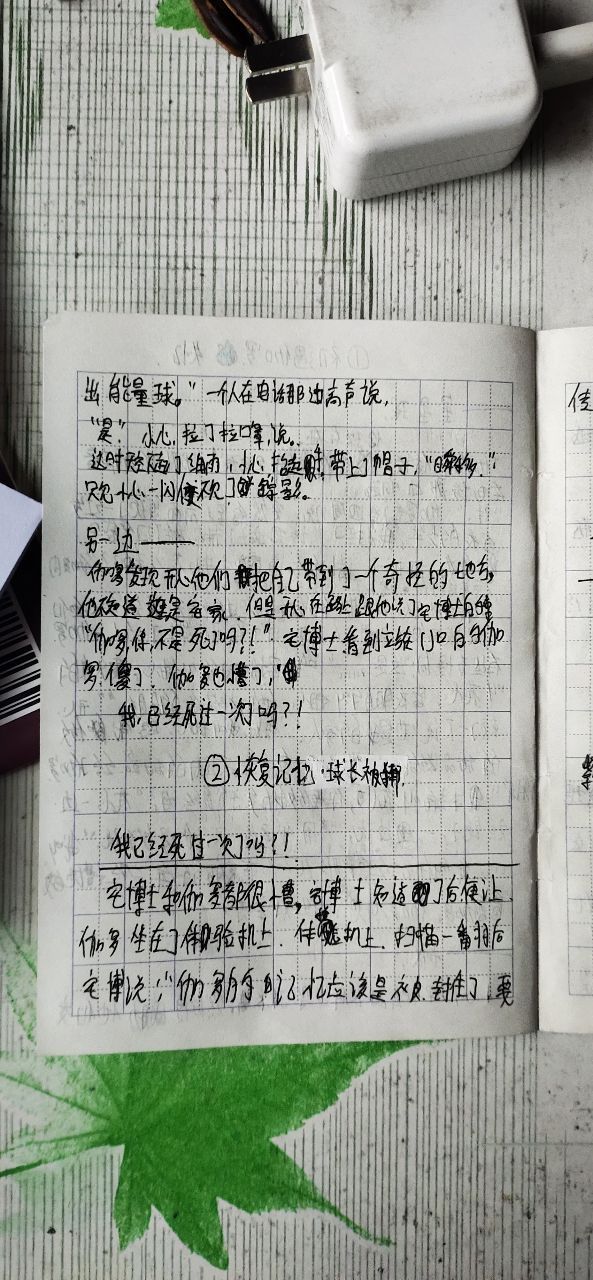 出能量球。"一个人在电话那边高声说,
"是."小心,拉了拉嘴,说.
这时 了细雨,小心 带上了帽子,"瞬移."
只见小心一闪便不见了 踪影。
另一边——
伽罗发现开心他们 把自己带到了一个奇怪的地方,
他不知道 是宅家.但是开心在路上跟他说了宅博士的
"伽罗,你,不是死了吗?!"宅博士看到站在门口的伽
罗.傻了.伽罗也懵了,
我,已经死过一次了吗?!
②恢复记忆·球长被
我已经死过一次了吗?!
宅博士和伽罗都很懵,宅博士知道 了后便让
伽罗坐在了体 验机上.体 机上.扫描一番 后
宅博说:"伽罗的 记忆应该是被 封住了,要
佳